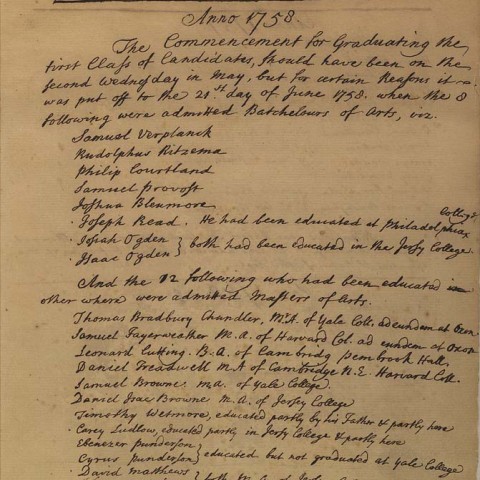 Anno 1758.
The Commencement for Graduating the
first Class of Candidates, should have been on the
second Wednesday in May, but for certain Reasons it
was put off to the 21st day of June 1758. when the 8
following were admitted Batchelours of Arts, viz.
Samuel Verplanck
Rudolphus Ritzema
Philip Courtland
Samuel Provost
Joshua Bloomore
Joseph Read. He had been educated at Philadelphia College
Josiah Ogden } both had been educated in the Jersy College
Isaac Ogden
And the 12 following who had been educated in
other where were admitted Masters of Arts.
Thomas Bradbury Chandler, M.A. of Yale Coll. ad eundem at Oxon
Samuel Fayerweather M.A. of Harvard Col. ad eundem at Oxon
Leonard Cutting. B.A. of Cambridg Pembrook Hall,
Daniel Treadwell M.A of Cambridge N.E. Harvard Coll.
Samuel Browne. M.A. of Yale College.
Daniel Isac Browne M.A. of Jersy College
Timothy Wetmore, educated partly by his Father & partly here
Carey Ludlow, educated partly in Jersy College & partly here
Ebenezer Punderson
Cyrus Punderson } educated but not graduated at Yale College
David Matthews